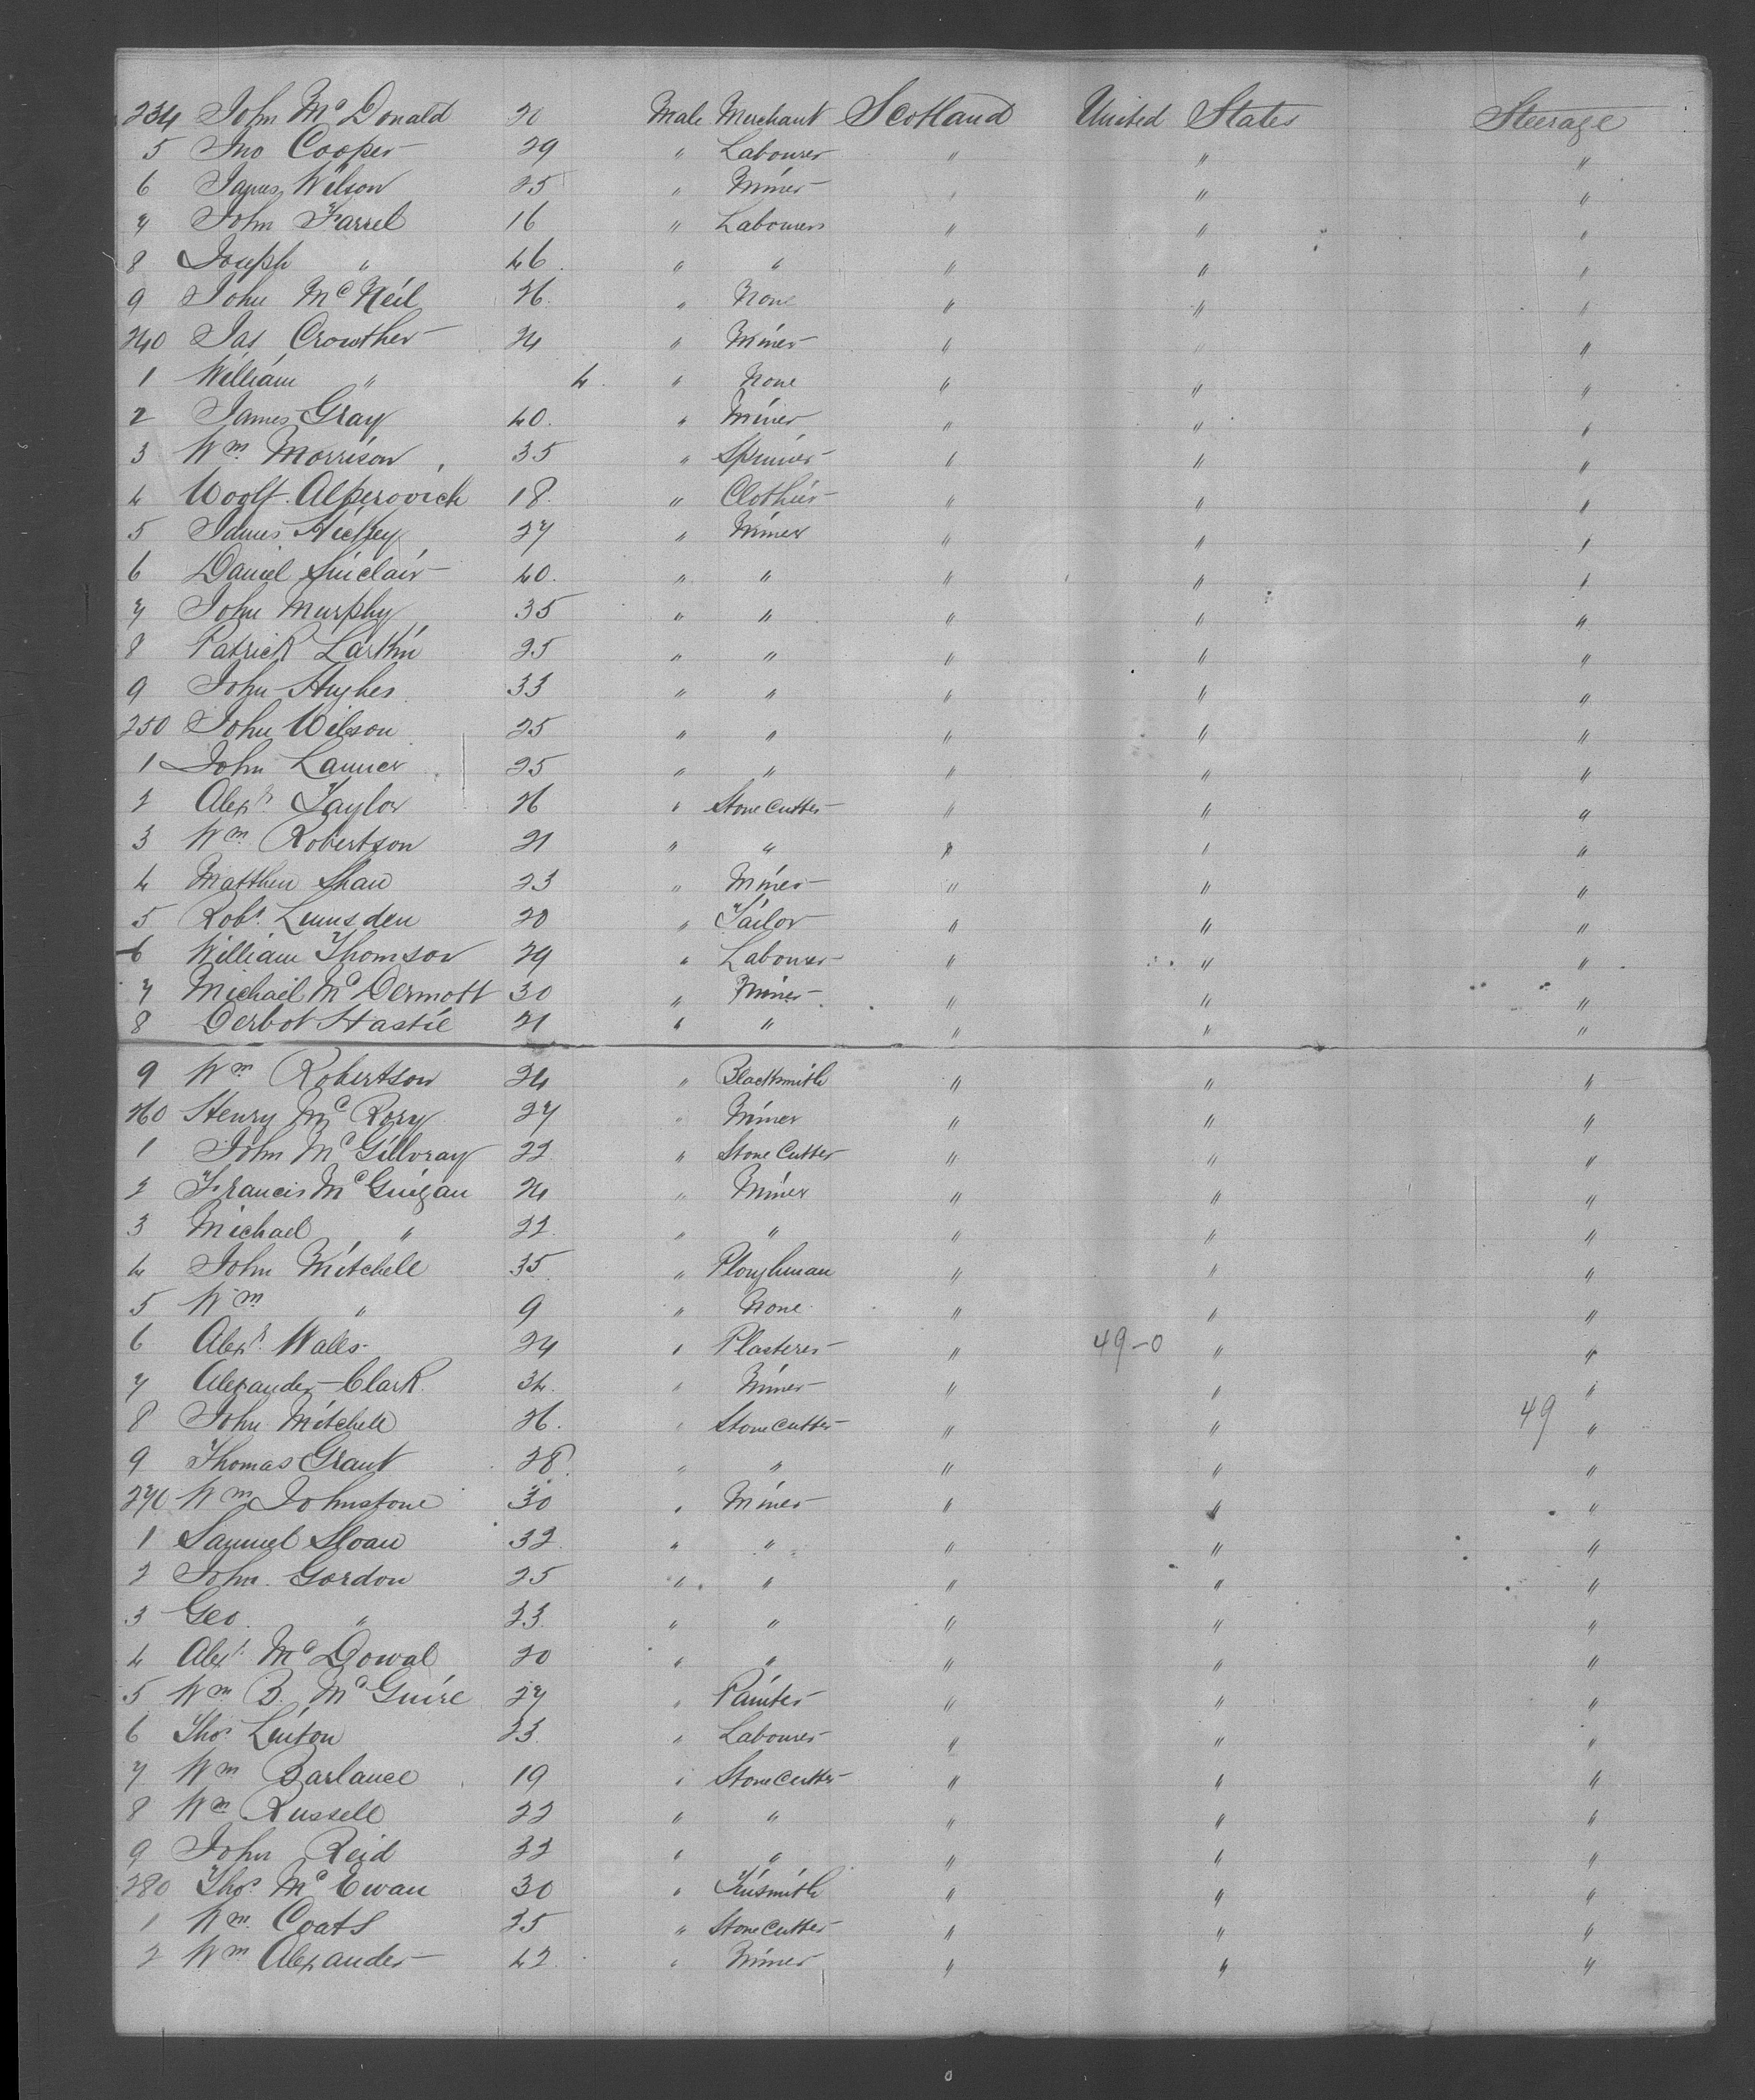 234 John Mc Donald 20 Male Merchant Scotland United States Steerage
5 Jno Cooper 29 " Labourer " " "
6 James Wilson 25 " Miner " " "
7 John Farrel 16 " Labourer " " "
8 Joseph " 46 " " " " "
9 John McNeil 26 " None " " "
240 Jas Crowther 24 " Miner " " "
1 William " 4 " None " " "
2 James Gray 40 " Miner " " "
3 Wm Morrison 35 " Spinner " " "
4 Woolf Alperovich 18 " Clothier " " "
5 James Hickey 27 " Miner " " "
6 Daniel Sinclair 40 " " " " "
7 John Murphy 35 " " " " "
8 Patrick Larkin 25 " " " " "
9 John Hughes 33 " " " " "
250 John Wilson 25 " " " " "
1 John 25 " " " " "
2 Alexr Taylor 26 " Stone Cutter " " "
3 Wm Robertson 21 " " " " "
4 Matthew Shaw 23 " Miner " " "
5 Robt Lumsden 20 " Tailor " " "
6 William Thomson 29 " Labourer " " "
7 Michael Mc Dermott 30 " Miner " " "
8 Hastie 21 " " " " "
9 Wm Robertson 24 " Blacksmith " " "
260 Henry Mc Rory 27 " Miner " " "
1 John Mc Gillvray 22 " Stone Cutter " " "
2 Francis Mc Guigan 24 " Miner " " "
3 Michael " 22 " " " " "
4 John Mitchell 35 " Ploughman " " "
5 Wm " 9 " None " " "
6 Alexr Walls 24 " Plasterer " 49-0 " "
7 Alexander Clark 34 " Miner " " "
8 John Mitchell 26 " Stone Cutter " " 49 "
9 Thomas Grant 28 " " " " "
270 Wm Johnstone 30 " Miner " " "
1 Samuel Sloan 32 " " " " "
2 John Gordon 25 " " " " "
3 Geo " 23 " " " " "
4 Alexr Mc Dowal 20 " " " " "
5 Wm B. Mc Guire 27 " Painter " " "
6 Thos Linton 23 " Labourer " " "
7 Wm Barlance 19 " Stone Cutter " " "
8 Wm Russell 22 " " " " "
9 John Reid 22 " " " " "
280 Thos Mc Ewan 30 " Tinsmith " " "
1 Wm Coats 25 " Stone Cutter " " "
2 Wm Alexander 42 " Miner " " "